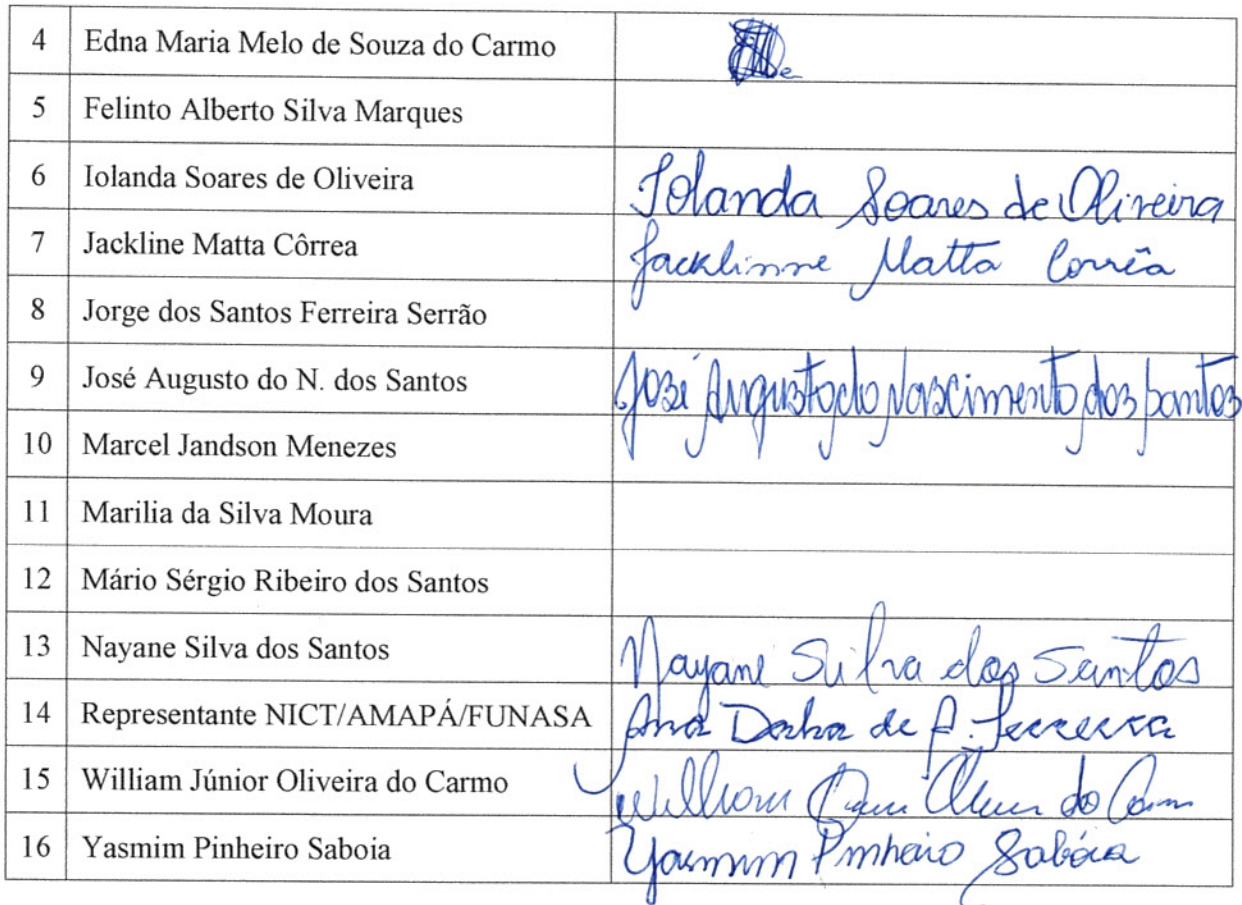 4 Edna Maria Melo de Souza do Carmo
5 Felinto Alberto Silva Marques
6 Iolanda Soares de Oliveira Iolanda Soares de Oliveira
7 Jackline Matta Côrrea Jacklinne Matta Corrêa
8 Jorge dos Santos Ferreira Serrão
9 José Augusto do N. dos Santos José Augusto do Nascimento dos Santos
10 Marcel Jandson Menezes
11 Marilia da Silva Moura
12 Mário Sérgio Ribeiro dos Santos
13 Nayane Silva dos Santos Nayane Silva dos Santos
14 Representante NICT/AMAPÁ/FUNASA Ana Dalva de A. Ferreira
15 William Júnior Oliveira do Carmo William do Carmo
16 Yasmim Pinheiro Saboia Yasmim Pinheiro Sabóia